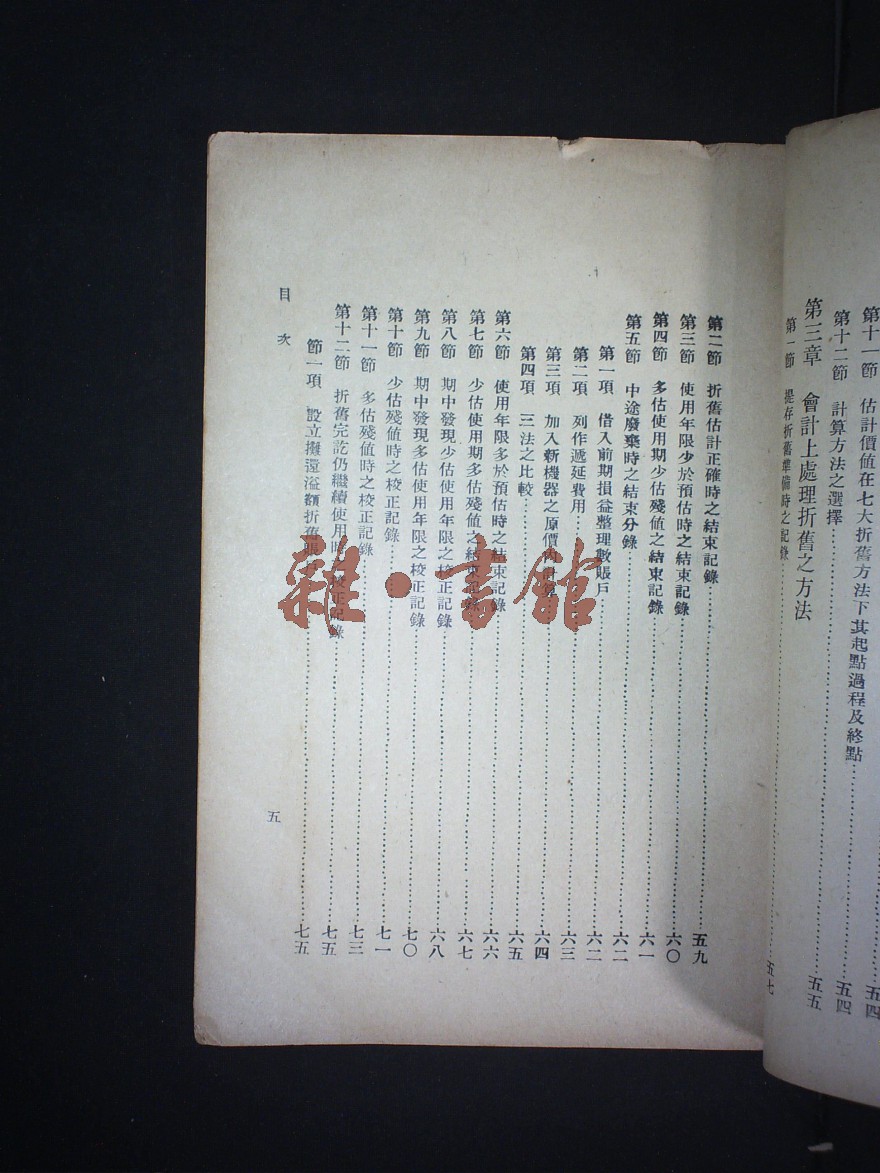 第十一節 估計價值在七大折舊方法下其起點過程及終點……五四
第十二節 計算方法之選擇……五四
第三章 會計上處理折舊之方法……五五
第一節 提存折舊準備時之記錄……五七
第二節 折舊估計正確時之結束記錄……五九
第三節 使用年限少於預估時之結束記錄……六〇
第四節 多估使用期少估殘値之結束記錄……六一
第五節 中途廢棄時之結束分錄……六二
第一項 借入前期損益整理數賬戶……六二
第二項 列作遞延費用……六三
第三項 加入新機器之原價內計算……六四
第四項 三法之比較……六五
第六節 使用年限多於預估時之結束記錄……六六
第七節 少估使用期多估殘値之結束記錄……六七
第八節 期中發現少估使用年限之校正記錄……六八
第九節 期中發現多估使用年限之校正記錄……七〇
第十節 少估殘値時之校正記錄……七一
第十一節 多估殘値時之校正記錄……七三
第十二節 折舊完訖仍繼續使用時之校正記錄……七五
節一項 設立攤還溢額折舊賬……七五
目次
五
雜·書館